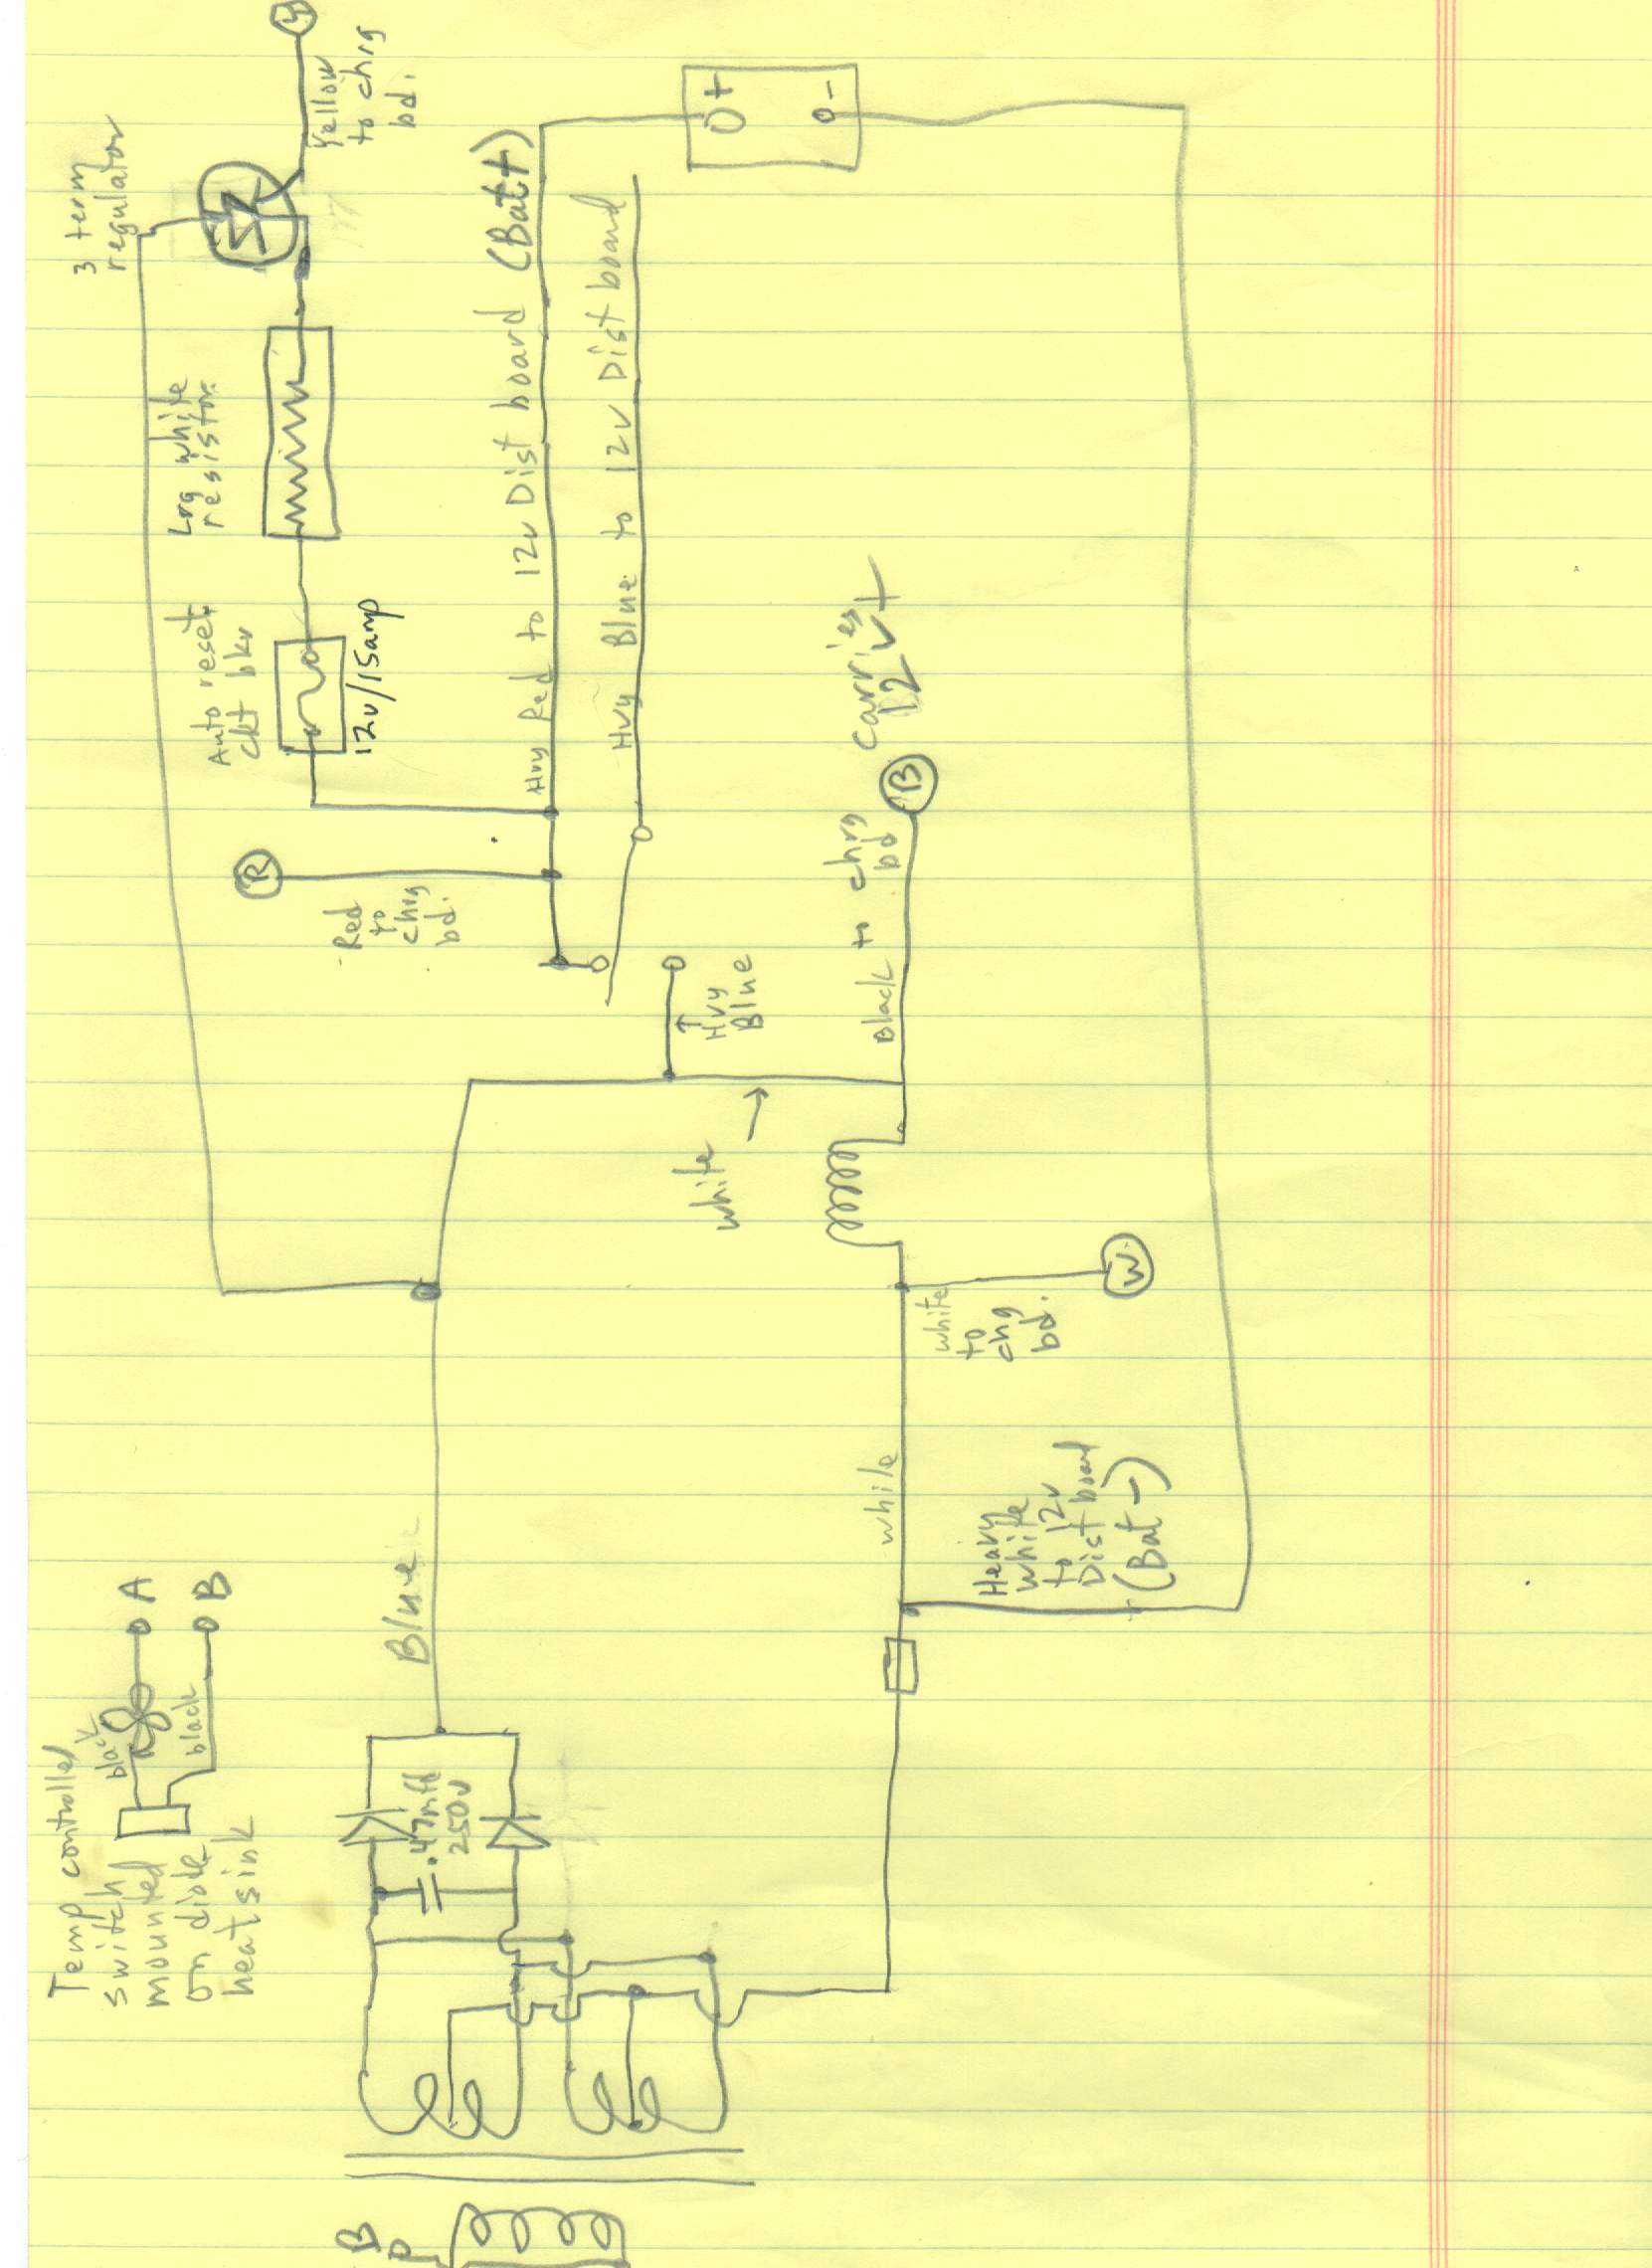 3 term
regulator
Y
Yellow
to chrg
bd.
Lrg white
resistor
Auto reset
ckt bkr
12v/15amp
Hvy Red to 12v Dist board (Bat+)
Hvy Blue to 12v Dist board
O+
o-
R
Red
to
chrg
bd.
Hvy
Blue
white
Black to chrg
bd
B
Carries
12V+
white
to
chg
bd.
W
white
Heavy
white
to 12v
Dist board
(Bat-)
Blue
Temp controlled
switch
mounted
on diode
heat sink
black
black
A
B
.47mfd
250v
B